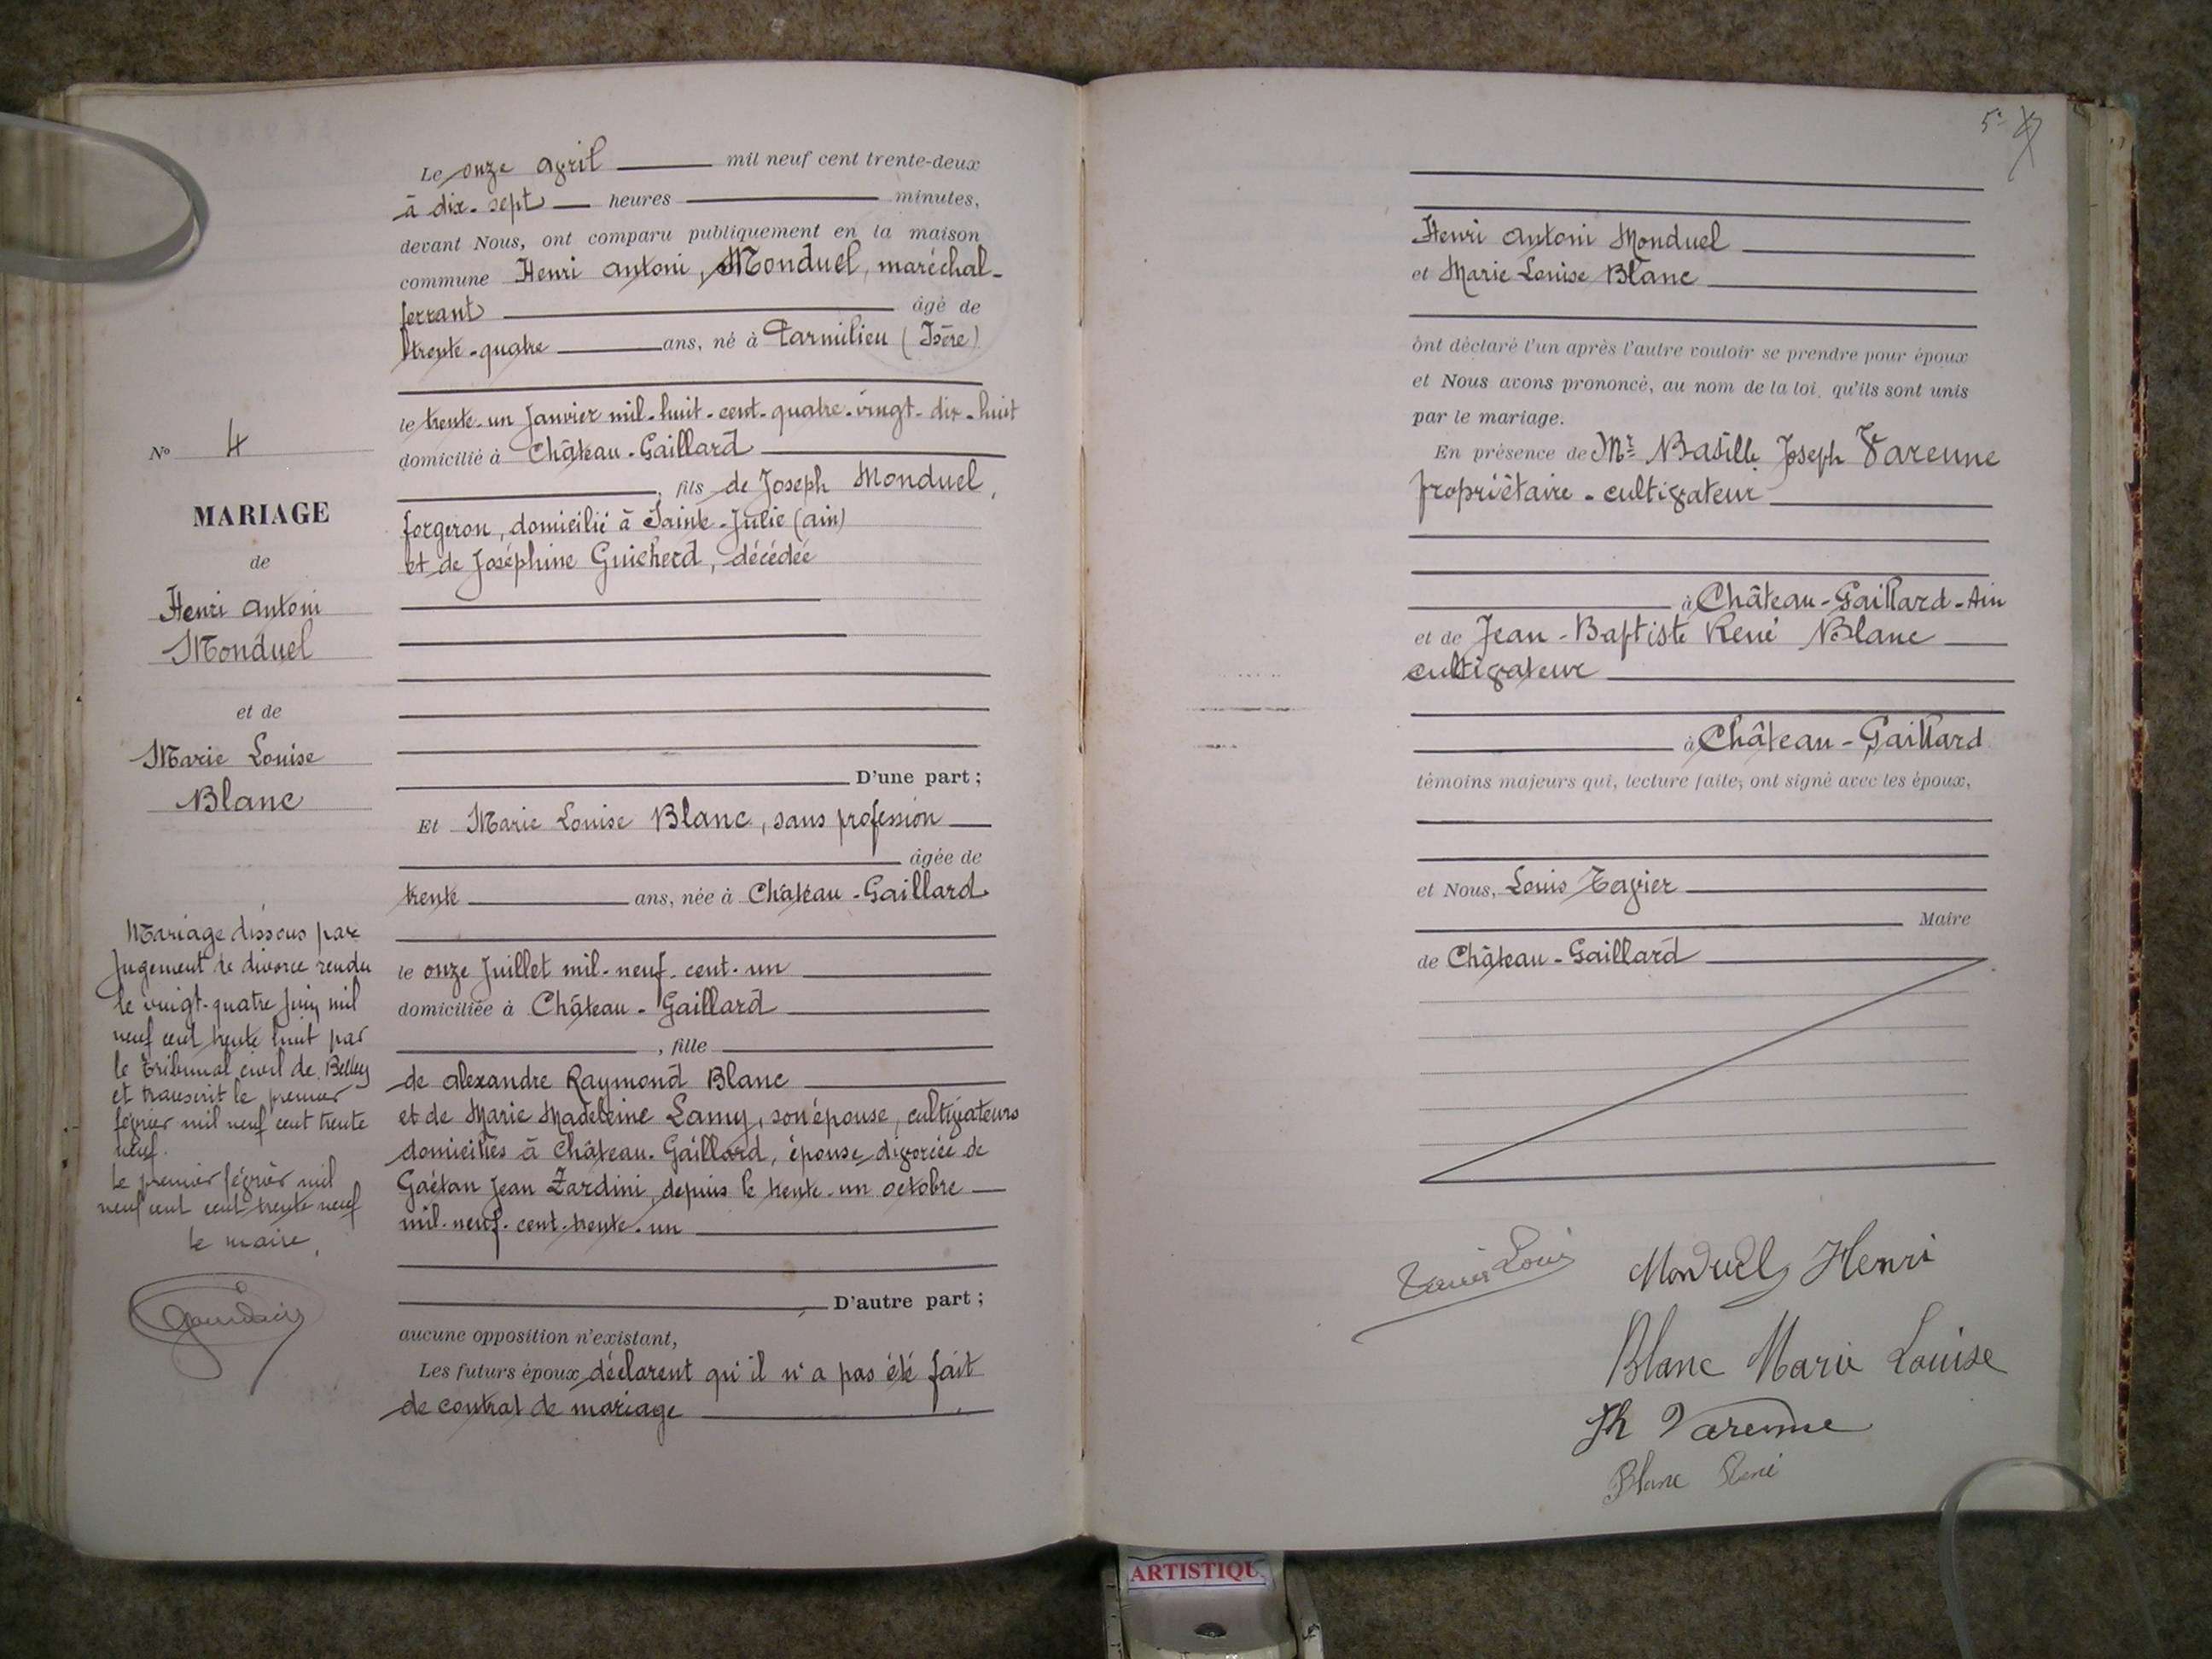 N° 4
MARIAGE
de
Henri Antoni
Monduel
et de
Marie Louise
Blanc
Mariage dissous par
Jugement de divorce rendu
le vingt-quatre Juin mil
neuf cent trente huit par
le Tribunal civil de Belley
et transcrit le premier
février mil neuf cent trente
neuf.
Le premier février mil
neuf cent cent trente neuf
le maire,
Le onze avril mil neuf cent trente-deux
à dix-sept heures minutes,
devant Nous, ont comparu publiquement en la maison
commune Henri Antoni, Monduel, maréchal-
ferrant âgé de
trente-quatre ans, né à Parmilieu (Isère)
le trente-un Janvier mil-huit-cent-quatre-vingt-dix-huit
domicilié à Château-Gaillard
, fils de Joseph Monduel,
forgeron, domicilié à Sainte-Julie (ain)
et de Joséphine Guicherd, décédée
D'une part ;
Et Marie Louise Blanc, sans profession
âgée de
trente ans, née à Château-Gaillard
le onze Juillet mil-neuf-cent-un
domiciliée à Château-Gaillard
, fille
de Alexandre Raymond Blanc
et de Marie Madeleine Lamy, son épouse, cultivateurs
domiciliés à Château-Gaillard, épouse divorcée de
Gaétan Jean Zardini, depuis le trente-un octobre
mil-neuf-cent-trente-un
D'autre part ;
aucune opposition n'existant,
Les futurs époux déclarent qu'il n'a pas été fait
de contrat de mariage
5
Henri Antoni Monduel
et Marie Louise Blanc
ont déclaré l'un après l'autre vouloir se prendre pour époux
et Nous avons prononcé, au nom de la loi, qu'ils sont unis
par le mariage.
En présence de Mr Basille Joseph Varenne
propriétaire-cultivateur
à Château-Gaillard-Ain
et de Jean-Baptiste René Blanc
cultivateur
à Château-Gaillard
témoins majeurs qui, lecture faite, ont signé avec les époux,
et Nous, Louis Tavier
Maire
de Château-Gaillard
Tavier Louis
Monduel Henri
Blanc Marie Louise
Jh Varenne
Blanc René
ARTISTIQU